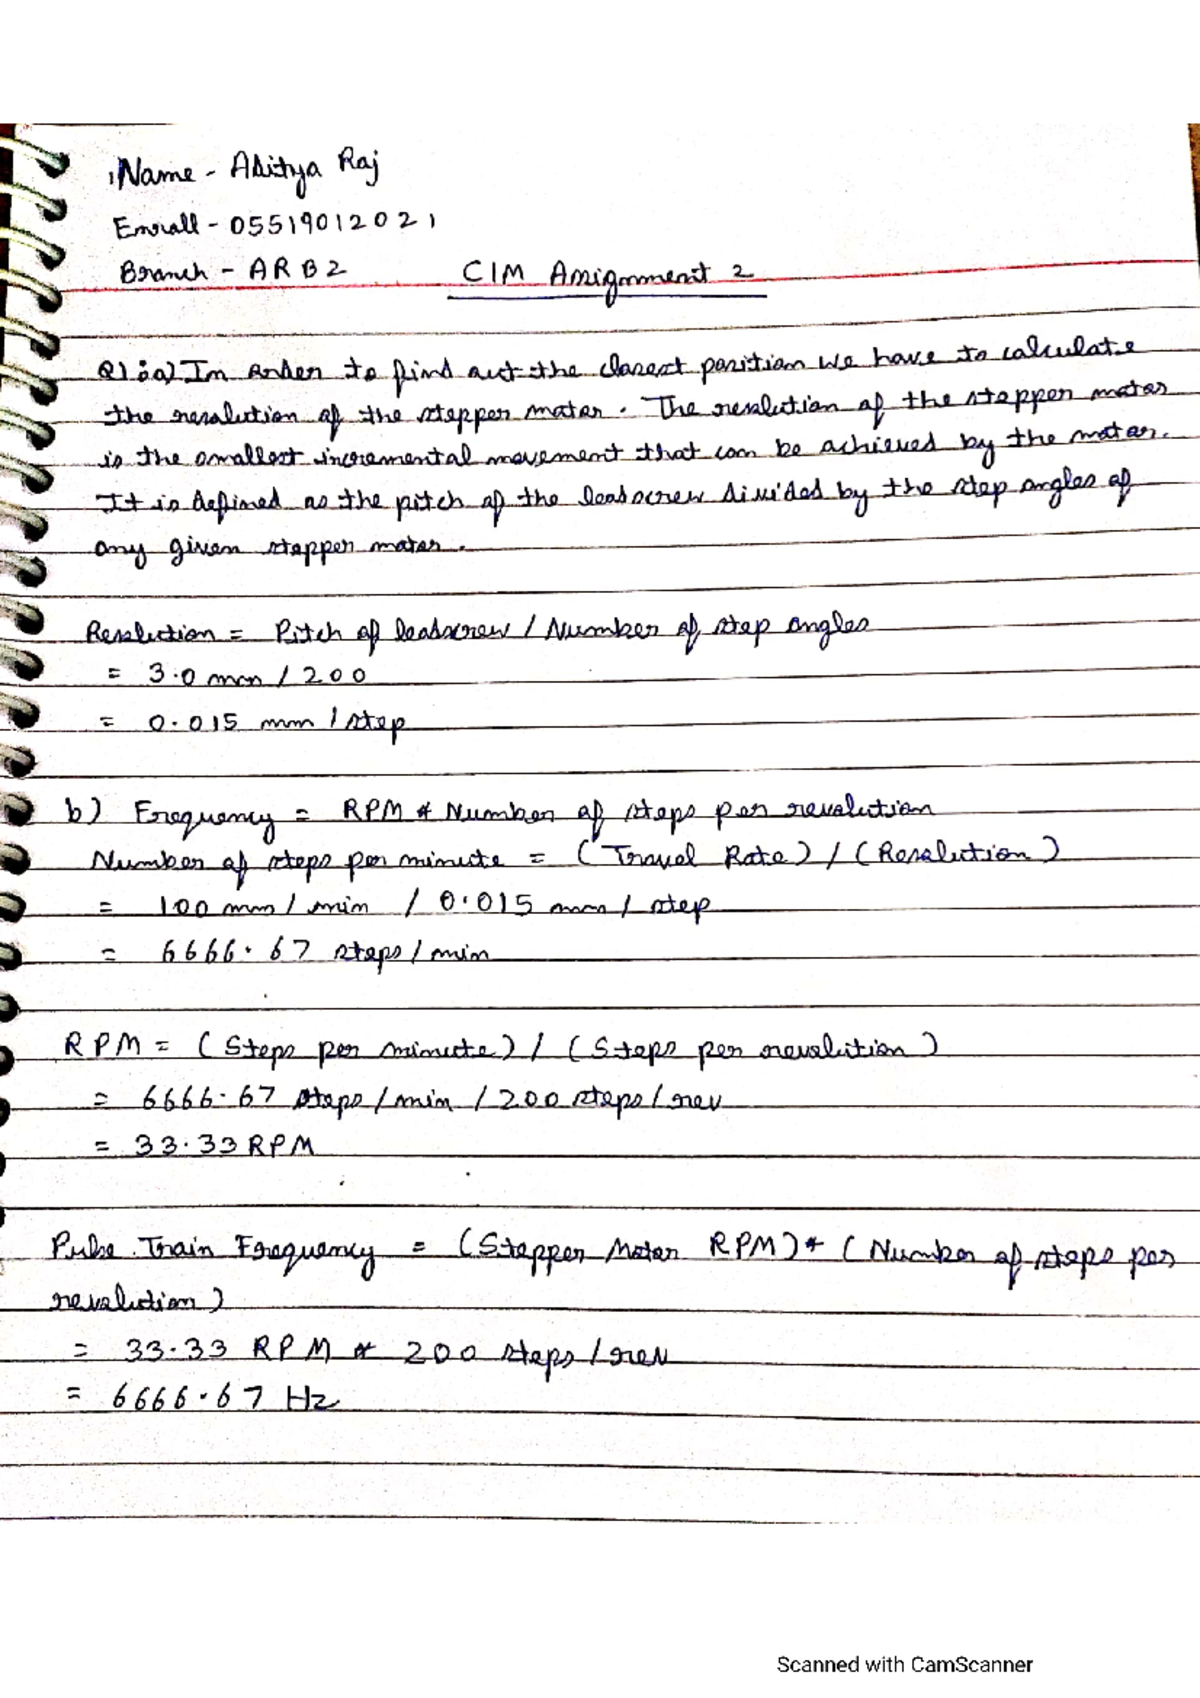 Name - Aditya Raj
Enroll - 05519012021
Branch - ARB2
CIM Assignment 2
Q1:a) In order to find out the closest position we have to calculate
the resolution of the stepper motor. The resolution of the stepper motor
is the smallest incremental movement that can be achieved by the motor.
It is defined as the pitch of the leadscrew divided by the step angles of
any given stepper motor.
Resolution = Pitch of leadscrew / Number of step angles
= 3.0 mm / 200
= 0.015 mm / step
b) Frequency = RPM * Number of steps per revolution
Number of steps per minute = (Travel Rate) / (Resolution)
= 100 mm / min / 0.015 mm / step
= 6666.67 steps / min
RPM = (Steps per minute) / (Steps per revolution)
= 6666.67 steps / min / 200 steps / rev
= 33.33 RPM
Pulse Train Frequency = (Stepper Motor RPM) * (Number of steps per
revolution)
= 33.33 RPM * 200 steps / rev
= 6666.67 Hz
Scanned with CamScanner